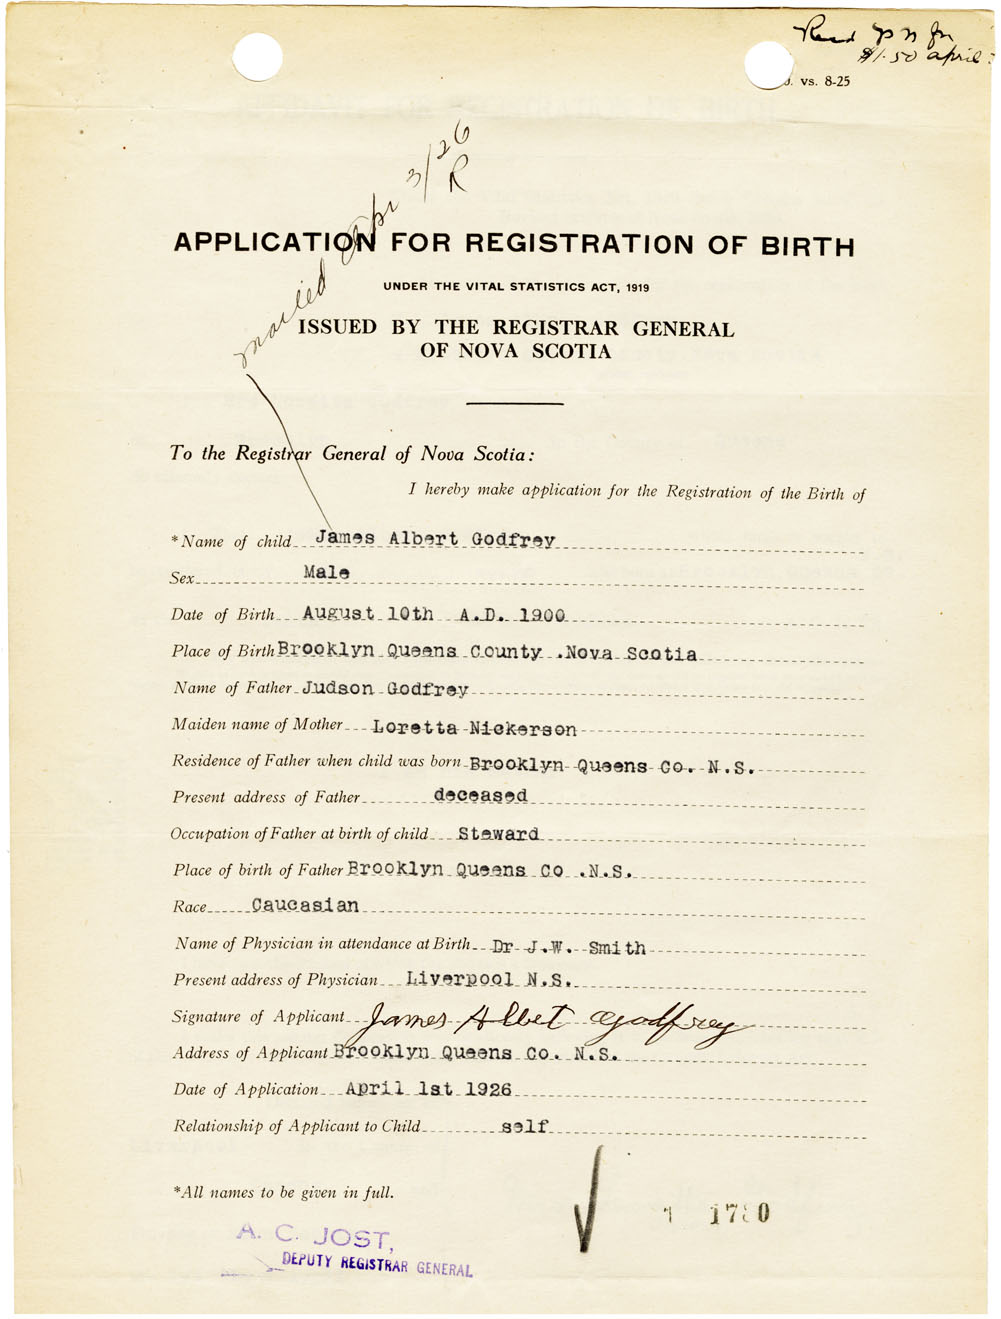 Recd P N for
$1.50 april
. vs. 8-25
mailed Apr 3/26
R
APPLICATION FOR REGISTRATION OF BIRTH
UNDER THE VITAL STATISTICS ACT, 1919
ISSUED BY THE REGISTRAR GENERAL
OF NOVA SCOTIA
To the Registrar General of Nova Scotia:
I hereby make application for the Registration of the Birth of
*Name of child James Albert Godfrey
Sex Male
Date of Birth August 10th A.D. 1900
Place of Birth Brooklyn Queens County .Nova Scotia
Name of Father Judson Godfrey
Maiden name of Mother Loretta Nickerson
Residence of Father when child was born Brooklyn Queens Co. N.S.
Present address of Father deceased
Occupation of Father at birth of child Steward
Place of birth of Father Brooklyn Queens Co .N.S.
Race Caucasian
Name of Physician in attendance at Birth Dr J.W. Smith
Present address of Physician Liverpool N.S.
Signature of Applicant James Albet Godfrey
Address of Applicant Brooklyn Queens Co. N.S.
Date of Application April 1st 1926
Relationship of Applicant to Child self
*All names to be given in full.
A. C. JOST,
DEPUTY REGISTRAR GENERAL